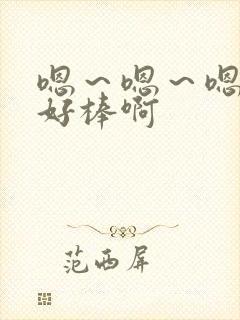 嗯～嗯～嗯
好棒啊
范西屏